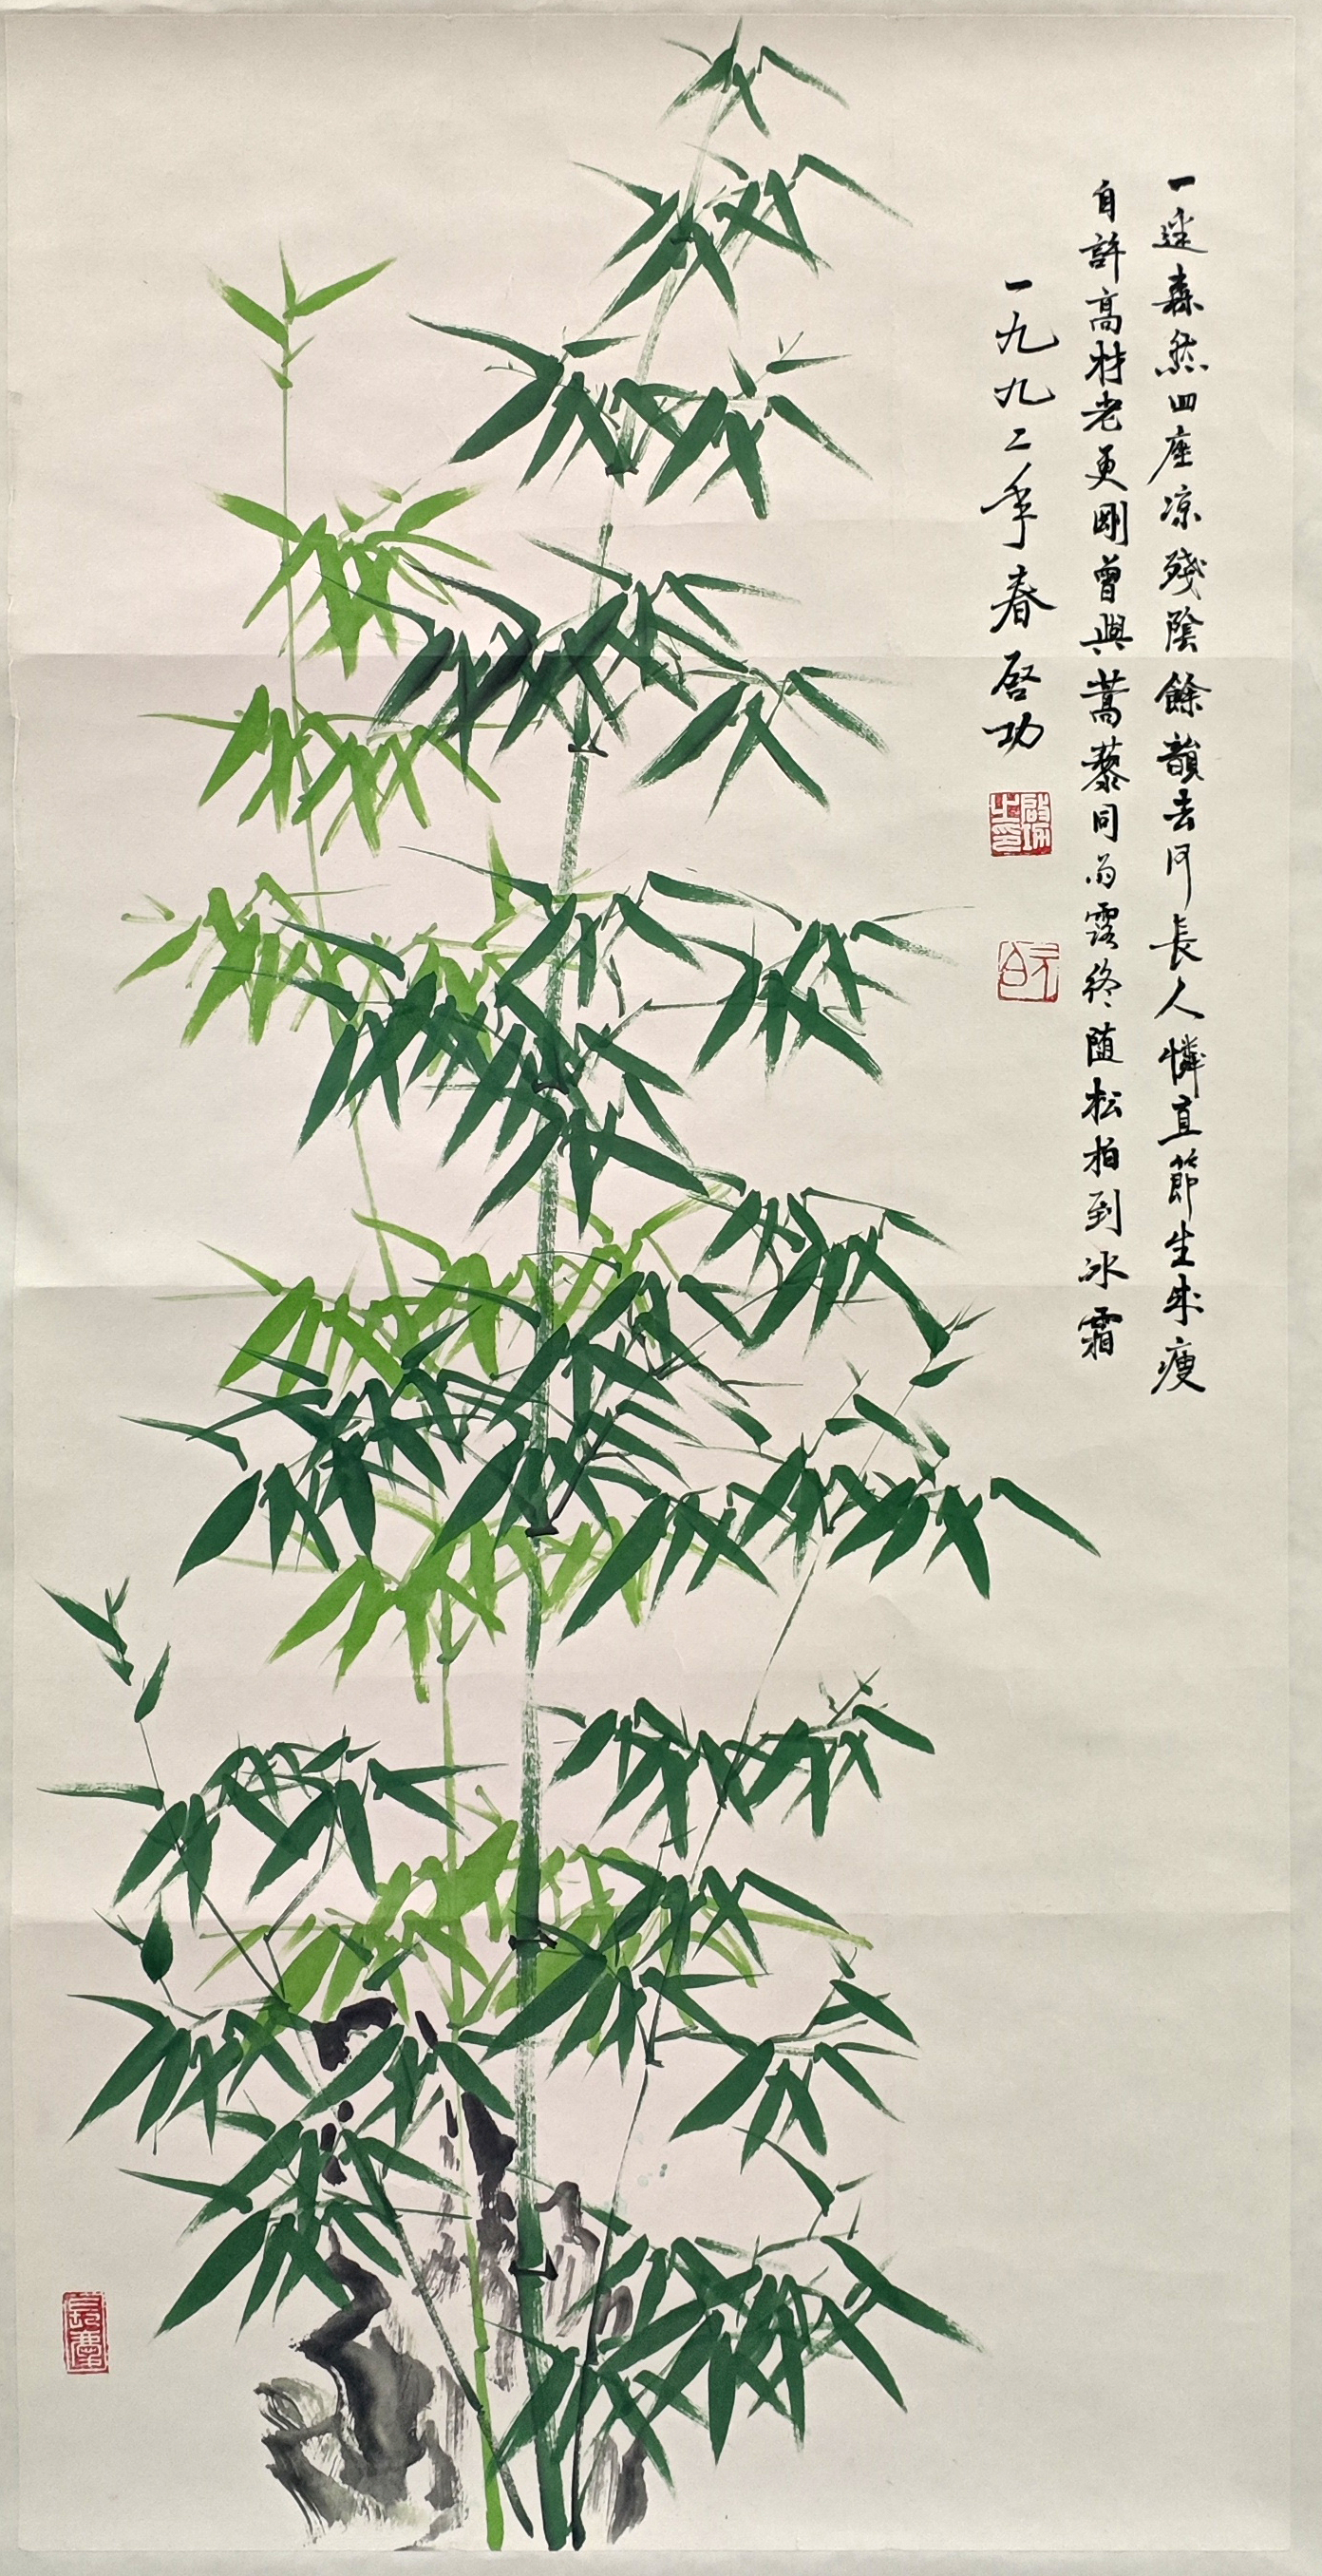 一逕森然四座凉殘陰餘韻去何長人憐直節生来瘦
自許高材老更剛曾與蒿藜同雨露終随松柏到冰霜
一九九二年春启功
啟功之印
元白